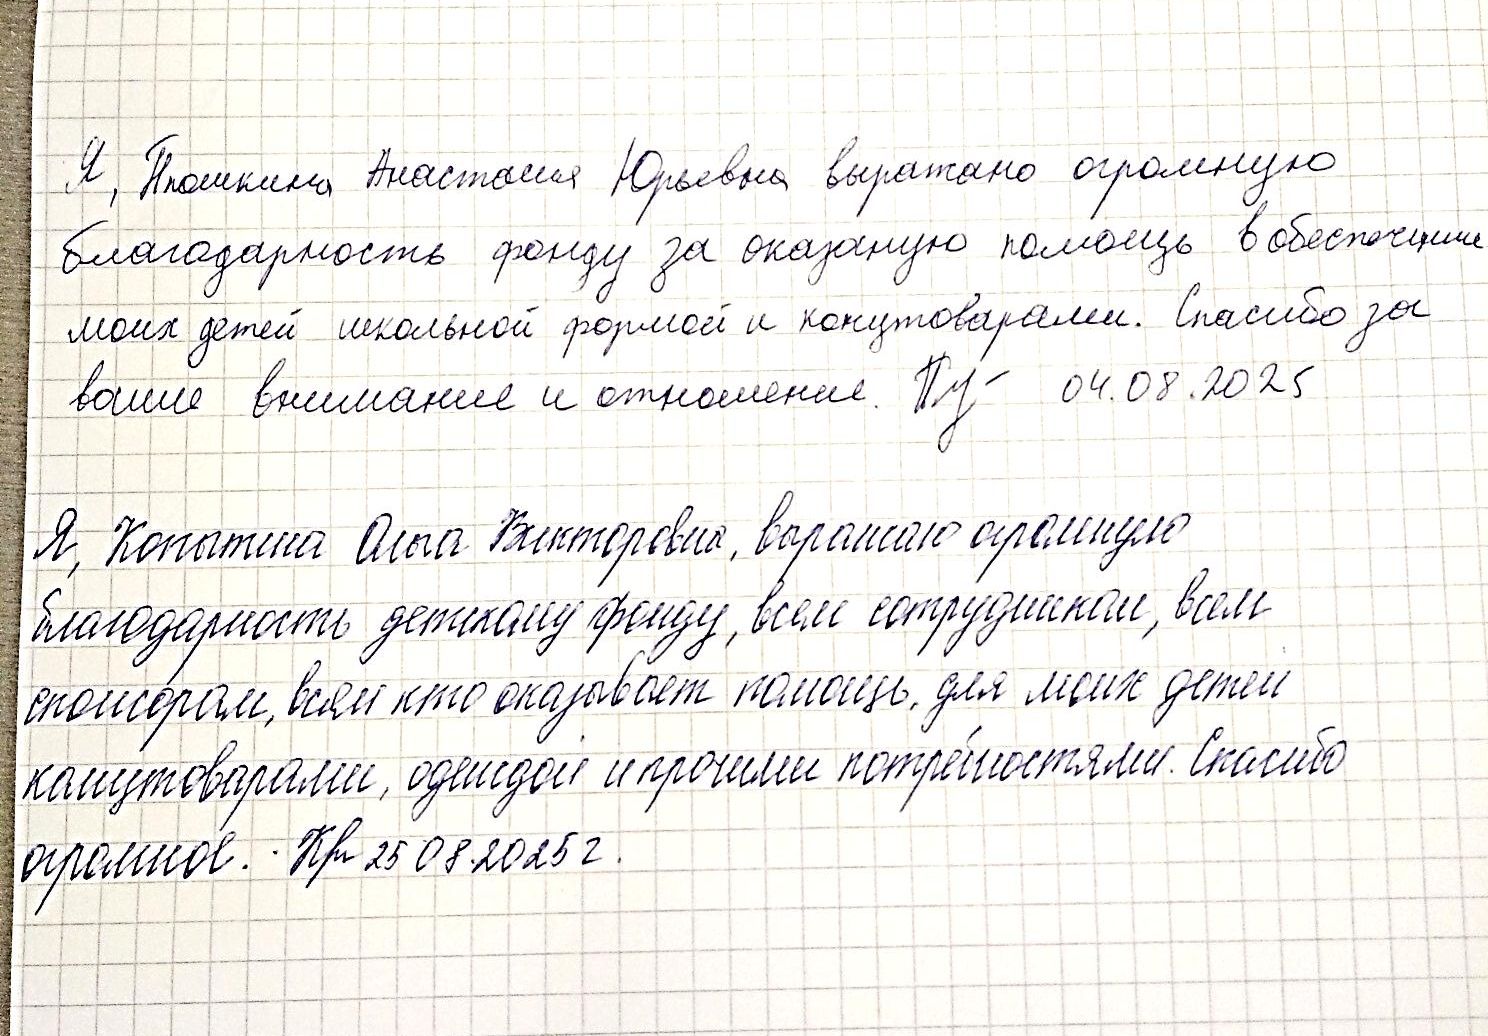 Я, Анастасия Юрьевна выражаю огромную
благодарность фонду за оказаную помощь в обеспечении
моих детей школьной формой и канцтоварами. Спасибо за
ваше внимание и отношение. 04.08.2025
Я, Копытина Ольга Викторовна, выражаю огромную
благодарность детскому фонду, всем сотрудникам, всем
спонсорам, всем кто оказывает помощь, для моих детей
канцтоварами, одеждой и прочими потребностями. Спасибо
огромное. 25 08.2025 г.